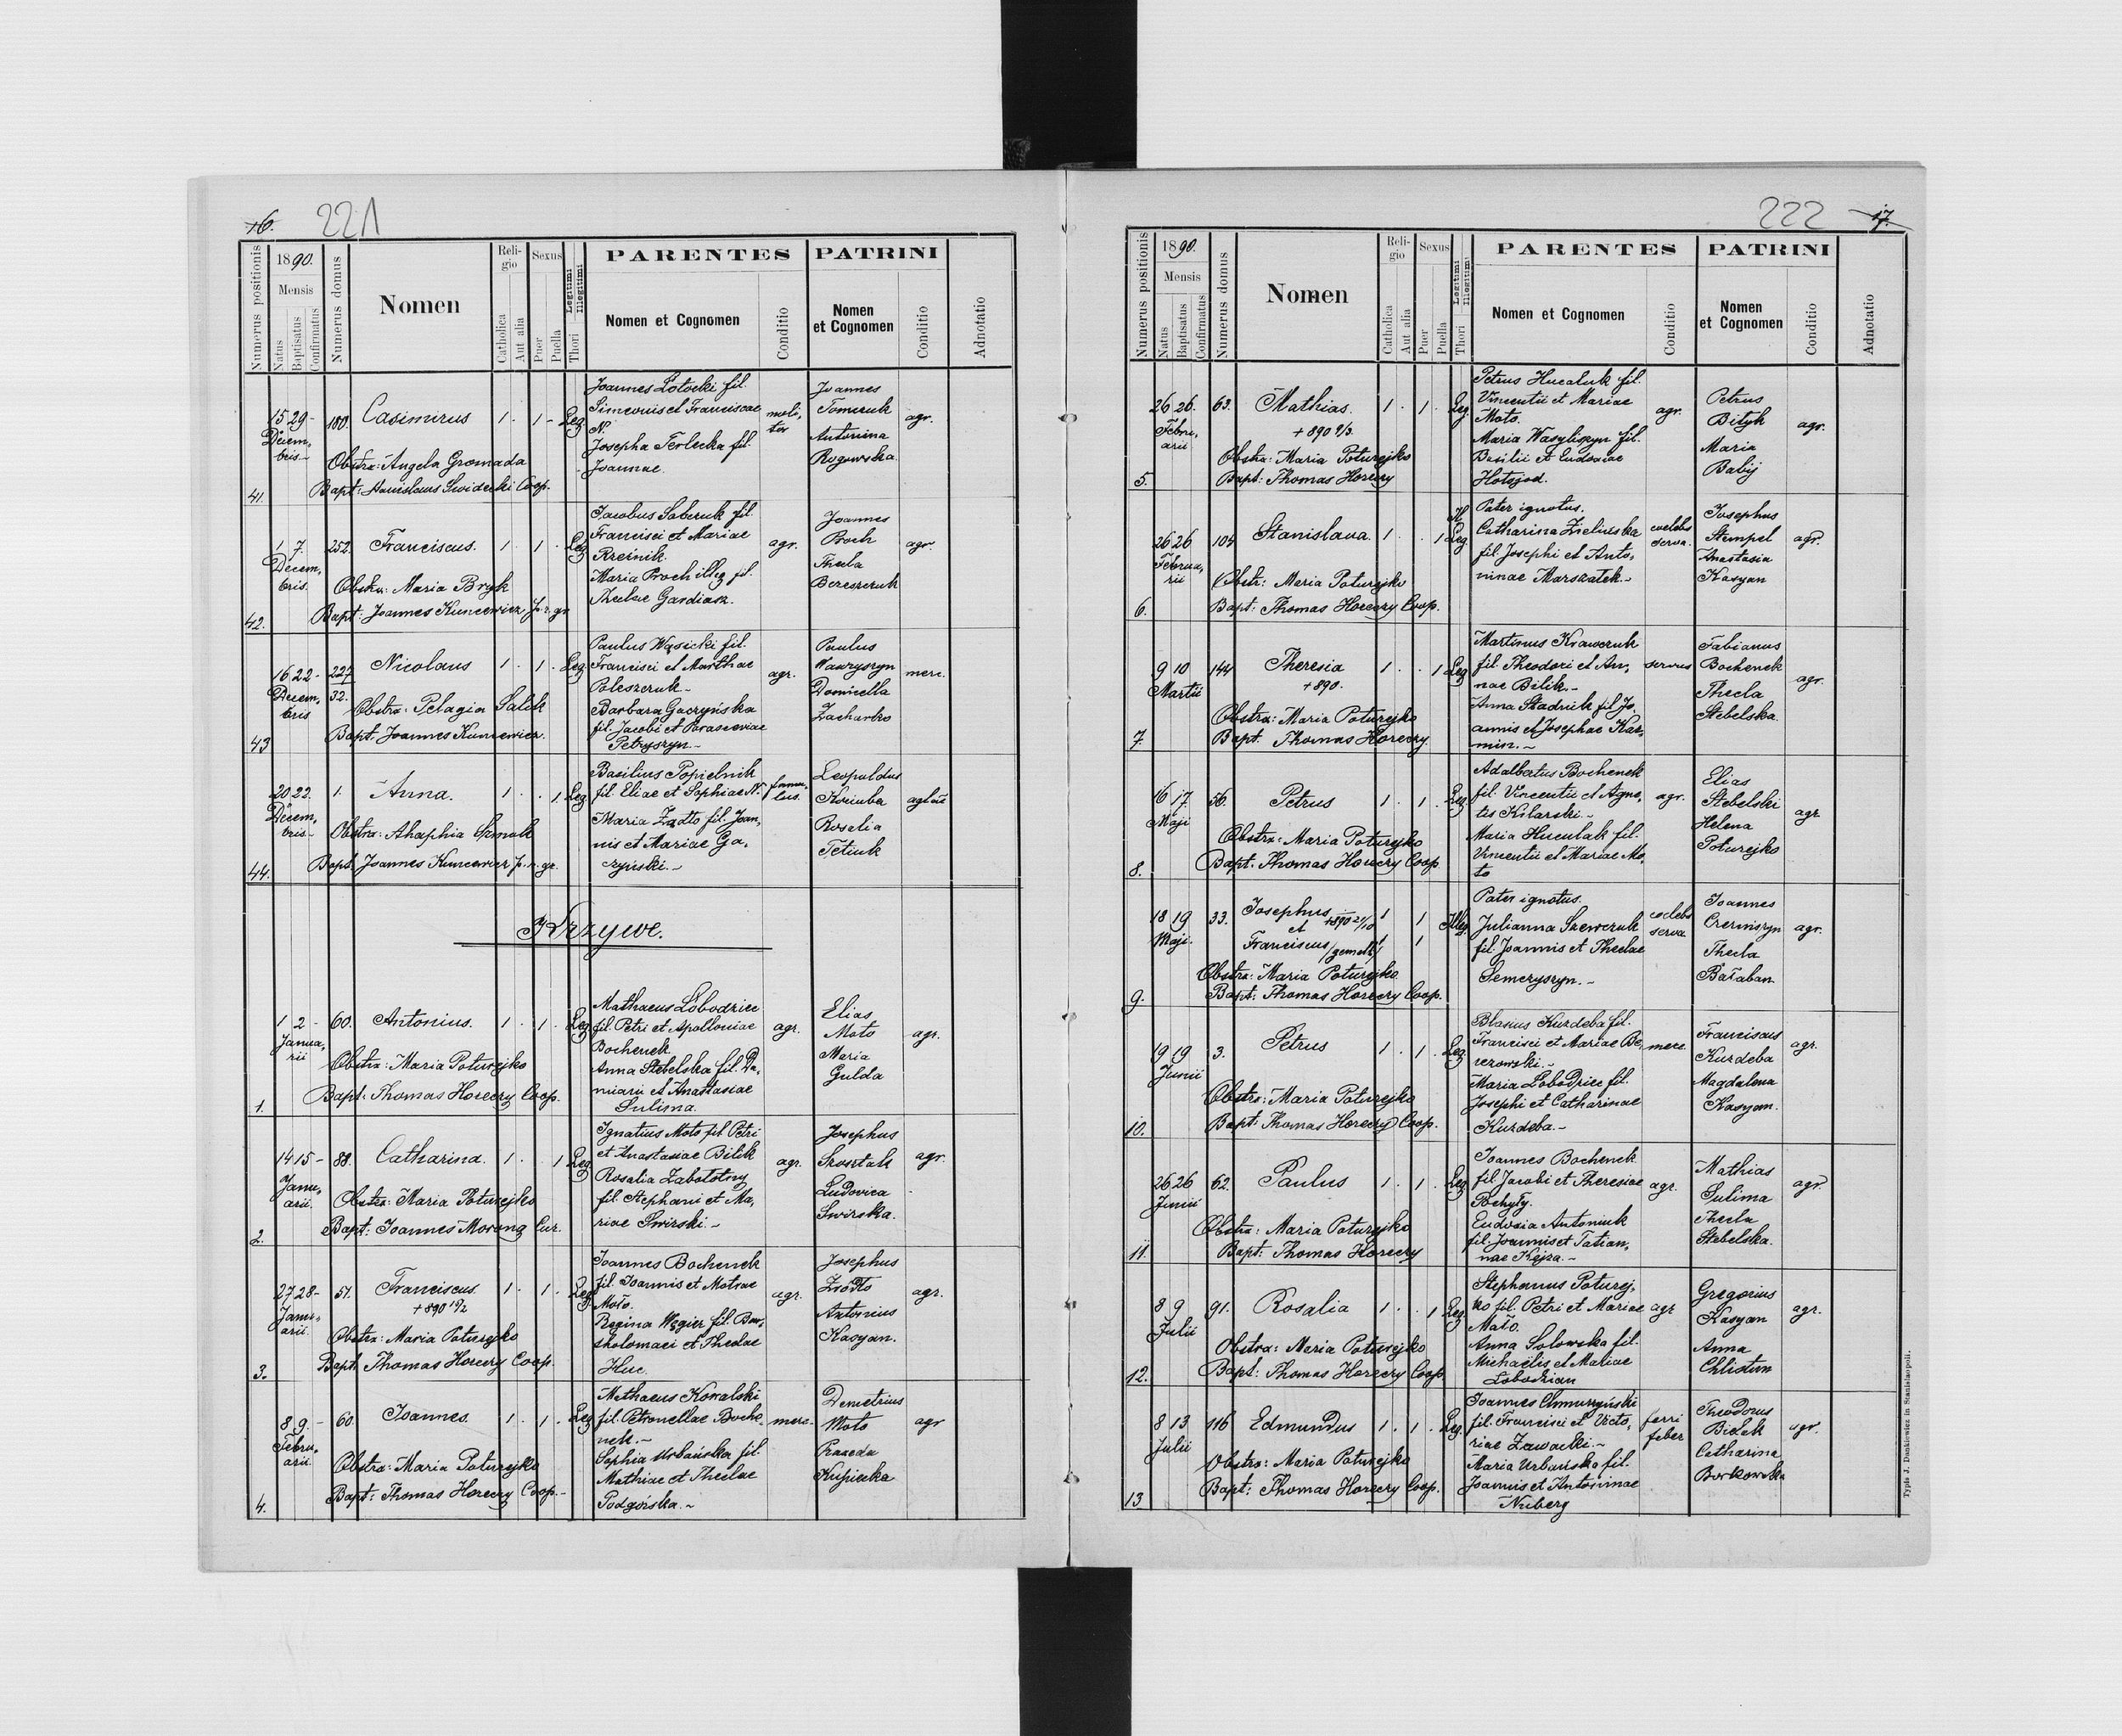 16. 221
Numerus positionis
1890.
Mensis
Natus
Baptisatus
Confirmatus
Numerus domus
Nomen
Religio
Catholica
Aut alia
Sexus
Puer
Puella
Legitimi
Illegitimi
Thori
PARENTES
Nomen et Cognomen
Conditio
PATRINI
Nomen
et Cognomen
Conditio
Adnotatio
41.
15 29 -
Decem,
bris.-
180.
Casimirus
1 . 1 - Leg
Obstra: Angela Gromada
Bapt: Stanislaus Swidecki Coop.
Joannes Lotocki fil.
Simeonis et Franciscae
N.
Josepha Terlecka fil.
Joannae.
moli,
tor
Joannes
Tomczuk
Antonina
Rogowska.
agr.
42.
1 7.
Decem,
bris.
252.
Franciscus.
1 . 1 . Leg
Obstra: Maria Bryk
Bapt: Joannes Kuncewicz
Jacobus Saberuk fil.
Francisci et Mariae
Rzeźnik.
Maria Proch illeg fil.
Theclae Gardiasz.
agr.
Joannes
Proch
Thecla
Berezczuk
agr.
43
16 22 -
Decem,
bris
227
32.
Nicolaus
1 . 1 . Leg
Obstra: Pelagia Salik
Bapt: Joannes Kuncewicz.
Paulus Wąsicki fil.
Francisci et Marthae
Poleszczuk -
Barbara Gaczyńska
fil. Jacobi et Parasceviae
Petryszyn.-
agr.
Paulus
Wawryszyn
Domicella
Zacharko
merc.
44.
20 22.
Decem,
bris-
1.
Anna.
1 . . 1. Leg
Obstra: Ahaphia Szmuk
Bapt: Joannes Kuncewicz
Basilius Popielnik
fil. Eliae et Sophiae N.
Maria Ządło fil. Joan,
nis et Mariae Ga,
czyński.-
famu,
lus.
Leopoldus
Kociuba
Rosalia
Tetiuk
Krzywe.
1.
1 2 -
Janua,
rii
60.
Antonius.
1 . 1 . Leg
Obstra: Maria Poturejko
Bapt: Thomas Horeczy Coop.
Mathaeus Łobodziec
fil. Petri et Apolloniae
Bochenek.
Anna Stebelska fil. Da,
miani et Anastasiae
Sulima.
agr.
Elias
Moto
Maria
Gulda
agr.
2.
14 15 -
Janu,
arii.
88.
Catharina.
1 . 1 Leg
Obstra: Maria Poturejko
Bapt: Joannes Morong Cur.
Ignatius Moto fil Petri
et Anastasiae Bilek
Rosalia Zabołotny
fil. Stephani et Ma,
riae Swirski.-
agr.
Josephus
Szosztak
Ludovica
Swirska.
agr.
3.
27 28 -
Janu,
arii.
51.
Franciscus.
+890 19/2
1 . 1 . Leg
Obstra: Maria Poturejko
Bapt: Thomas Horeczy Coop.
Joannes Bochenek
fil. Joannis et Motrae
Moto.
Regina Węgier fil. Bar,
tholomaei et Theclae
Huc.
agr.
Josephus
Zrodło
Antonius
Kasyan.
agr.
4.
8 9. -
Febru,
arii
60.
Joannes.
1 . 1 . Leg
Obstra: Maria Poturejko
Bapt: Thomas Horeczy Coop.-
Mathaeus Kowalski
fil. Petronellae Boche,
nek.-
Sophia Urbańska fil.
Mathiae et Theclae
Podgórska.~
merc.
Demetrius
Moto
Praxeda
Kupiecka
agr
222 17.
Numerus positionis
1890.
Mensis
Natus
Baptisatus
Confirmatus
Numerus domus
Nomen
Religio
Catholica
Aut alia
Sexus
Puer
Puella
Legitimi
Illegitimi
Thori
PARENTES
Nomen et Cognomen
Conditio
PATRINI
Nomen
et Cognomen
Conditio
Adnotatio
5.
26 26.
Febru,
arii
63.
Mathias.
+890 9/3.
1 . 1 . Leg.
Obstra: Maria Poturejko
Bapt: Thomas Horeczy
Petrus Hucaluk fil.
Vincentii et Mariae
Moto.
Maria Wasyliszyn fil.
Basilii et Eudoxiae
Hołojad.
agr.
Petrus
Bityk
Maria
Babij
agr.
6.
26 26
Februa,
rii
104
Stanislava.
1 . . 1 Il Leg.
Obstr: Maria Poturejko
Bapt: Thomas Horeczy Coop.
Pater ignotus.
Catharina Zielińska
fil. Josephi et Anto,
ninae Marszałek.-
coelebs
serva.
Josephus
Stempel
Anastasia
Kasyan
agr.
7.
9 10
Martii
144
Theresia
+890.
1 . . 1 Leg
Obstra: Maria Poturejko
Bapt. Thomas Horeczy.
Martinus Krawczuk
fil. Theodori et An,
nae Bilik.-
Anna Stadnik fil Jo,
annis et Josephae Kaz,
min.~
servus
Fabianus
Bochenek
Thecla
Stebelska.
agr.
8.
16 17.
Maji
56.
Petrus
1 . 1 . Leg.
Obstra: Maria Poturejko
Bapt. Thomas Horeczy Coop
Adalbertus Bochenek
fil. Vincentii et Agne,
tis Kilarski.-
Maria Huculak fil.
Vincentii et Mariae Mo,
to
agr.
Elias
Stebelski
Helena
Poturejko
agr
9.
18 19
Maji.
33.
Josephus +890 21/10
et
Franciscus /gemelli/
1 1
1 1
Illeg.
Obstra: Maria Poturejko.
Bapt: Thomas Horeczy Coop.
Pater ignotus.
Julianna Szewczuk
fil. Joannis et Theclae
Semczyszyn.-
coelebs
serva
Joannes
Czerniszyn
Thecla
Bałaban.
agr.
10.
19 19
Junii
3.
Petrus
1 . 1 . Leg
Obstra: Maria Poturejko
Bapt: Thomas Horeczy Coop.
Blasius Kurdeba fil.
Francisci et Mariae Be,
rezowski.-
Maria Łobodziec fil.
Josephi et Catharinae
Kurdeba.-
merc.
Franciscus
Kurdeba
Magdalena
Kasyan.
agr.
11.
26 26
Junii
62.
Paulus
1 . 1 . Leg
Obstra: Maria Poturejko
Bapt: Thomas Horeczy
Joannes Bochenek
fil. Jacobi et Theresiae
Pochyły.
Eudoxia Antoniuk
fil. Joannis et Tatian,
nae Kejza.-
agr.
Mathias
Sulima
Thecla
Stebelska.
agr.
12.
8 9
Julii
91.
Rosalia
1 . . 1 Leg
Obstra: Maria Poturejko
Bapt: Thomas Horeczy Coop.
Stephanus Poturej,
ko fil. Petri et Mariae
Mato.
Anna Solowska fil.
Michaëlis et Mariae
Łobodzian
agr
Gregorius
Kasyan
Anna
Chlistun
agr.
13
8 13
Julii
116
Edmundus
1 . 1 . Leg.
Obstra: Maria Poturejko
Bapt: Thomas Horeczy Coop.
Joannes Chmurzyński
fil. Francisci et Victo,
riae Zawacki.~
Maria Urbańska fil.
Joannis et Antoninae
Nuberg
ferri
faber
Theodorus
Bielak
Catharina
Borkowska
agr.
Typis J. Dankiewicz in Stanislaopoli.